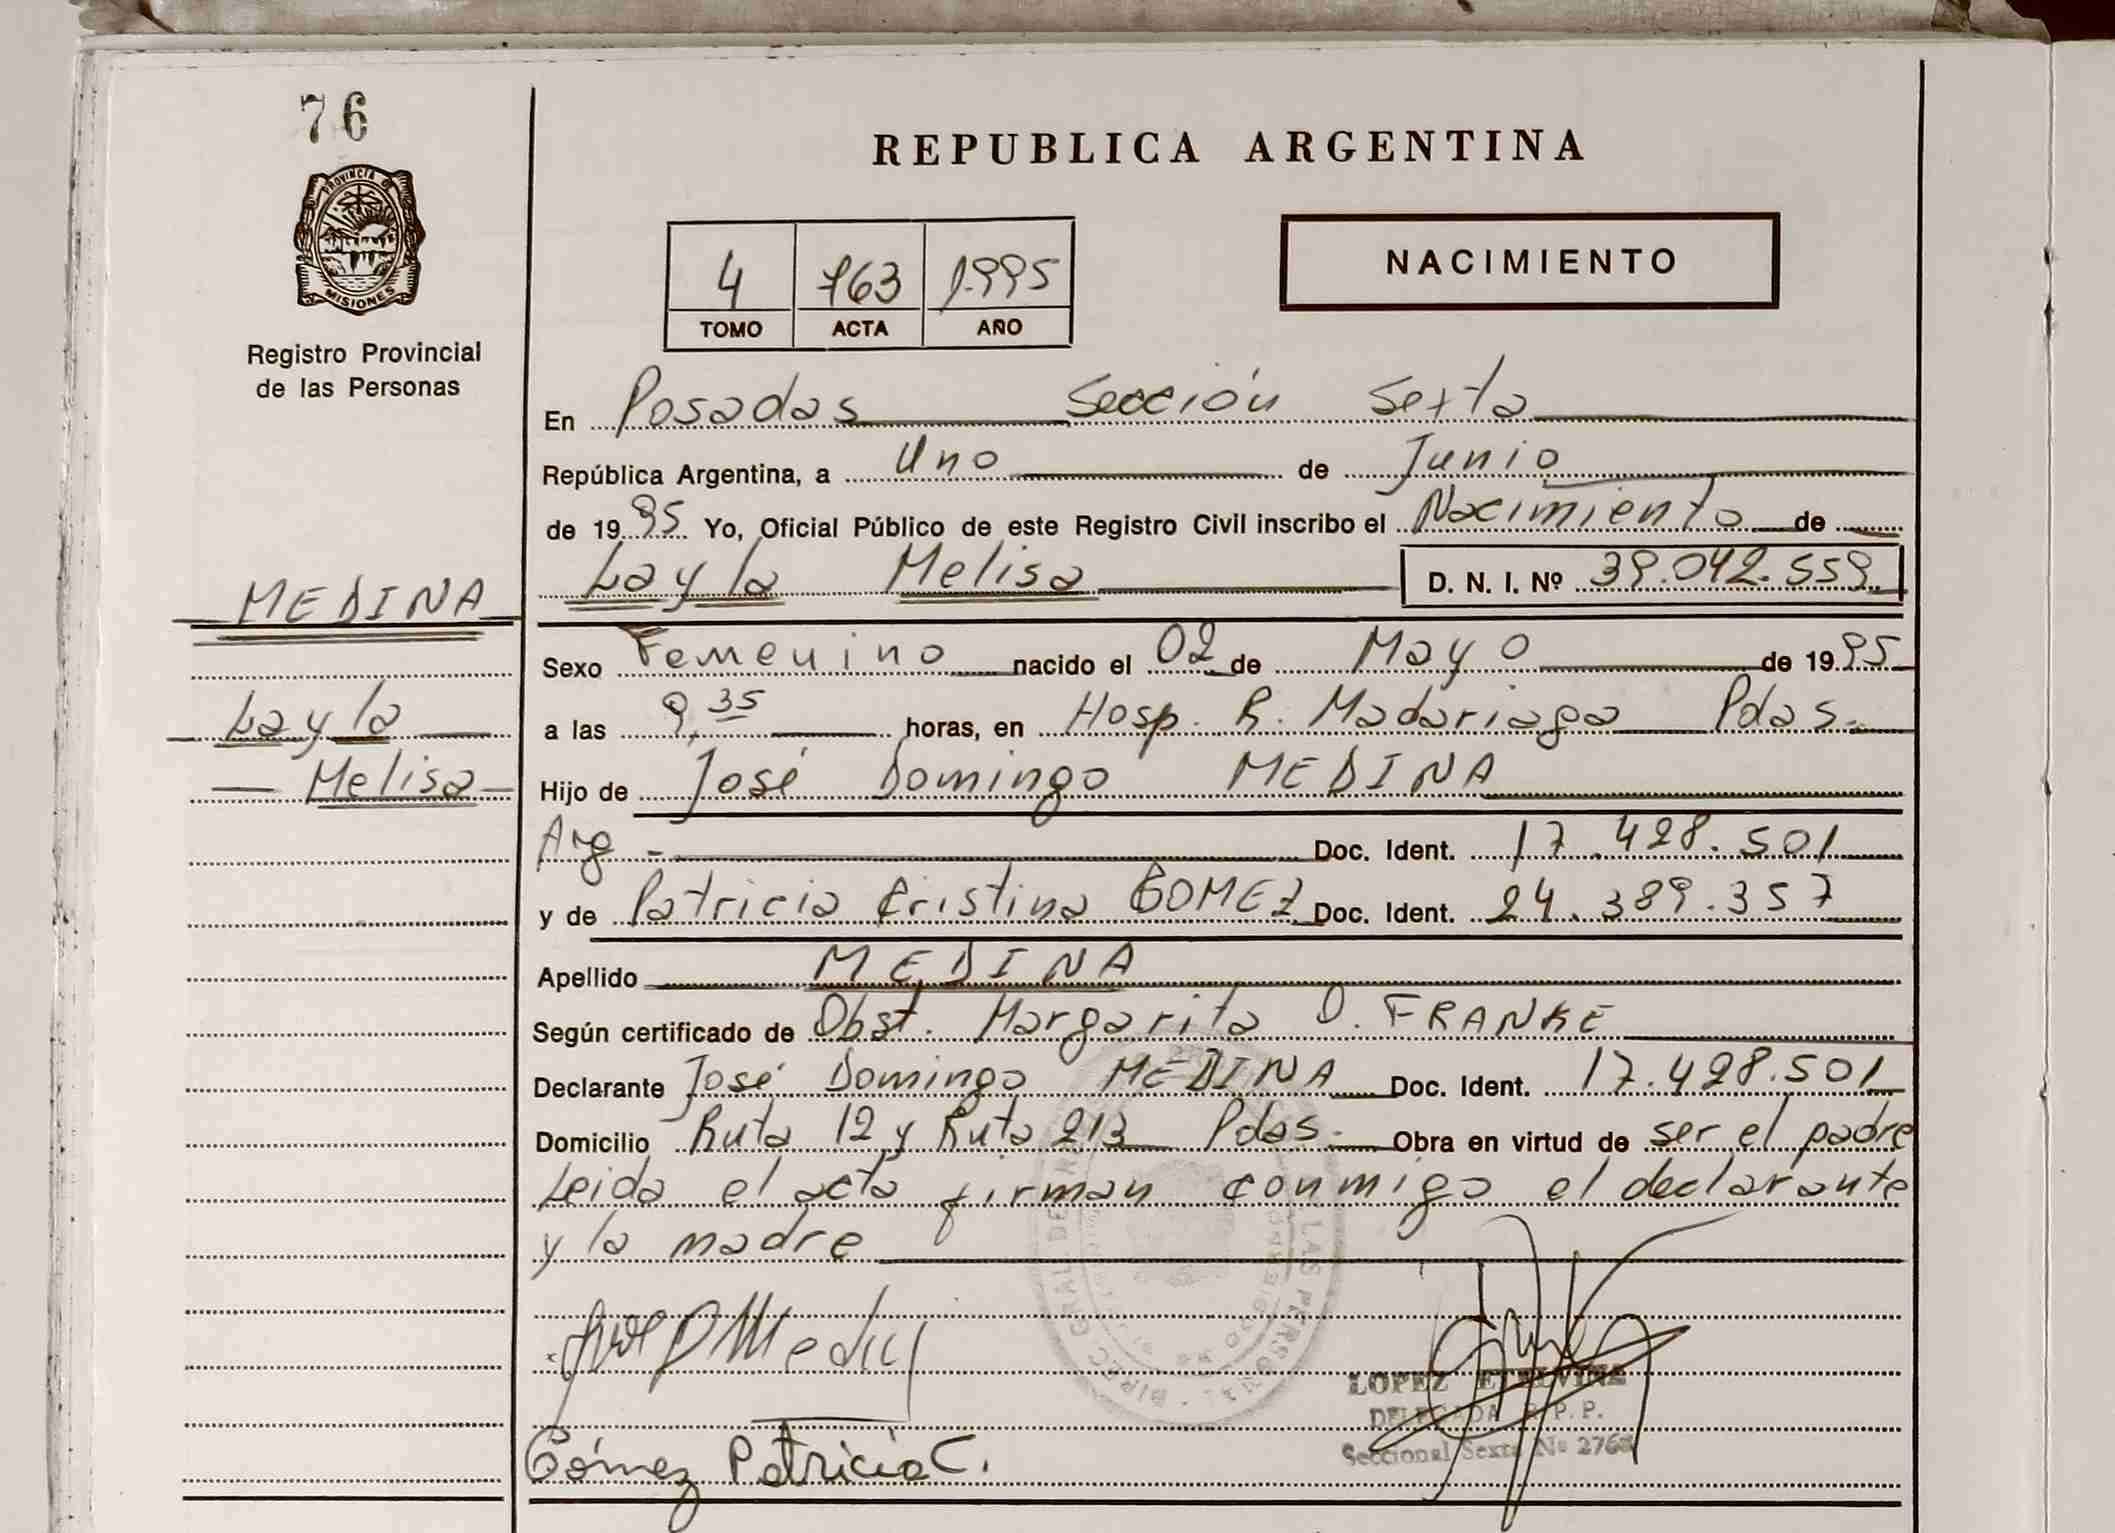 76
PROVINCIA DE
MISIONES
Registro Provincial
de las Personas
REPUBLICA ARGENTINA
4 763 1995
TOMO ACTA AÑO
NACIMIENTO
En Posadas Sección Sexta
República Argentina, a Uno de Junio
de 1995 Yo, Oficial Público de este Registro Civil inscribo el Nacimiento de
Layla Melisa D. N. I. Nº 39.042.559
MEDINA
Layla
Melisa
Sexo Femenino nacido el 02 de Mayo de 1995
a las 9,35 horas, en Hosp. R. Madariaga Pdas.
Hijo de José Domingo MEDINA
Arg - Doc. Ident. 17.428.501
y de Patricia Cristina GOMEZ Doc. Ident. 24.389.357
Apellido MEDINA
Según certificado de Obst. Margarita D. FRANKE
Declarante José Domingo MEDINA Doc. Ident. 17.428.501
Domicilio Ruta 12 y Ruta 213 Pdas. Obra en virtud de ser el padre
Leida el acta firman conmigo el declarante
y la madre
LOPEZ ETELVINA
DELEGADA R.P.P.
Seccional Sexta Nº
Gómez Patricia C.